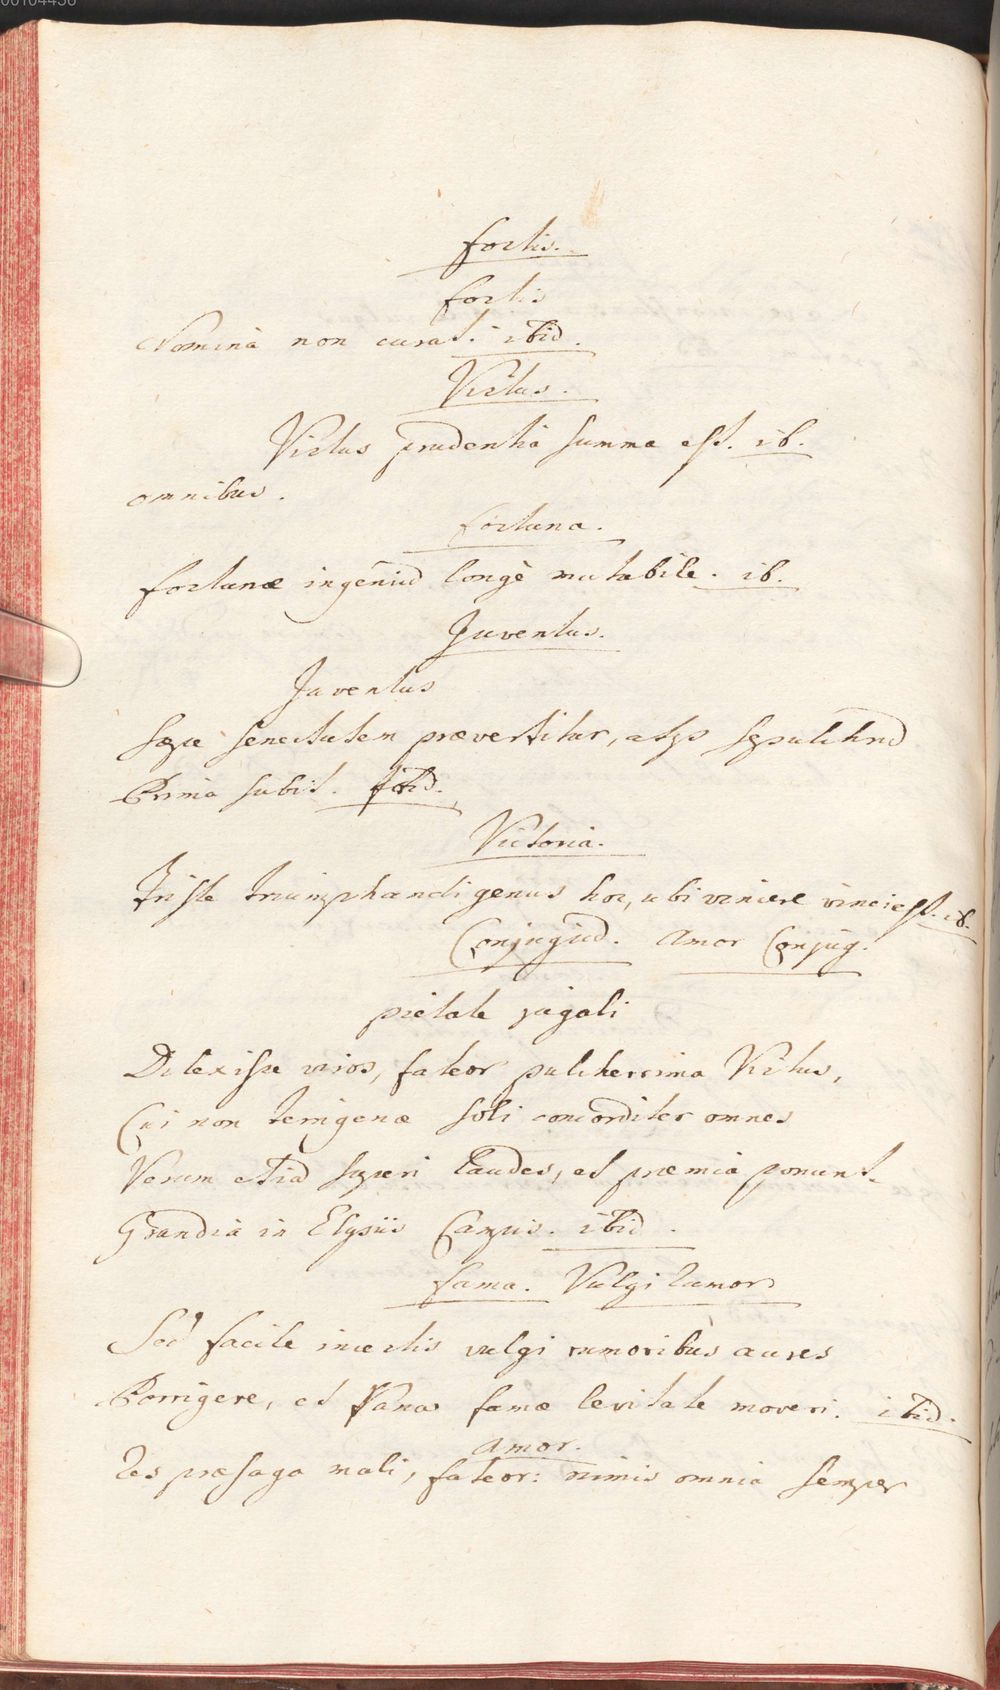 00104456
fortis.
fortis
Nomina non curat. ibid.
Virtus.
Virtus prudentia summa est. ib.
omnibus.
fortuna.
fortunæ ingeniu͂ longè mutabile. ib.
Juventus.
Juventus
Sæpe senectutem prævertitur, atq3 sepulchru͂
Prima subit. ibid.
Victoria.
Triste triumphandi genus hoc, ubi vincere vinci est. ib.
Conjugiu͂. Amor Conjug.
pietate jugali
Dilexisse viros, fateor pulcherrima Virtus,
Cui non terrigenæ soli concorditer omnes
Verum etia͂ superi laudes, et præmia ponunt
Grandia in Elysiis Campis. ibid.
fama. Vulgi rumor
Sed facile incertis vulgi rumoribus aures
Porrigere, et Vanas famæ levitate moveri. ibid.
Amor.
Res præsaga mali, fateor: nimis omnia semper